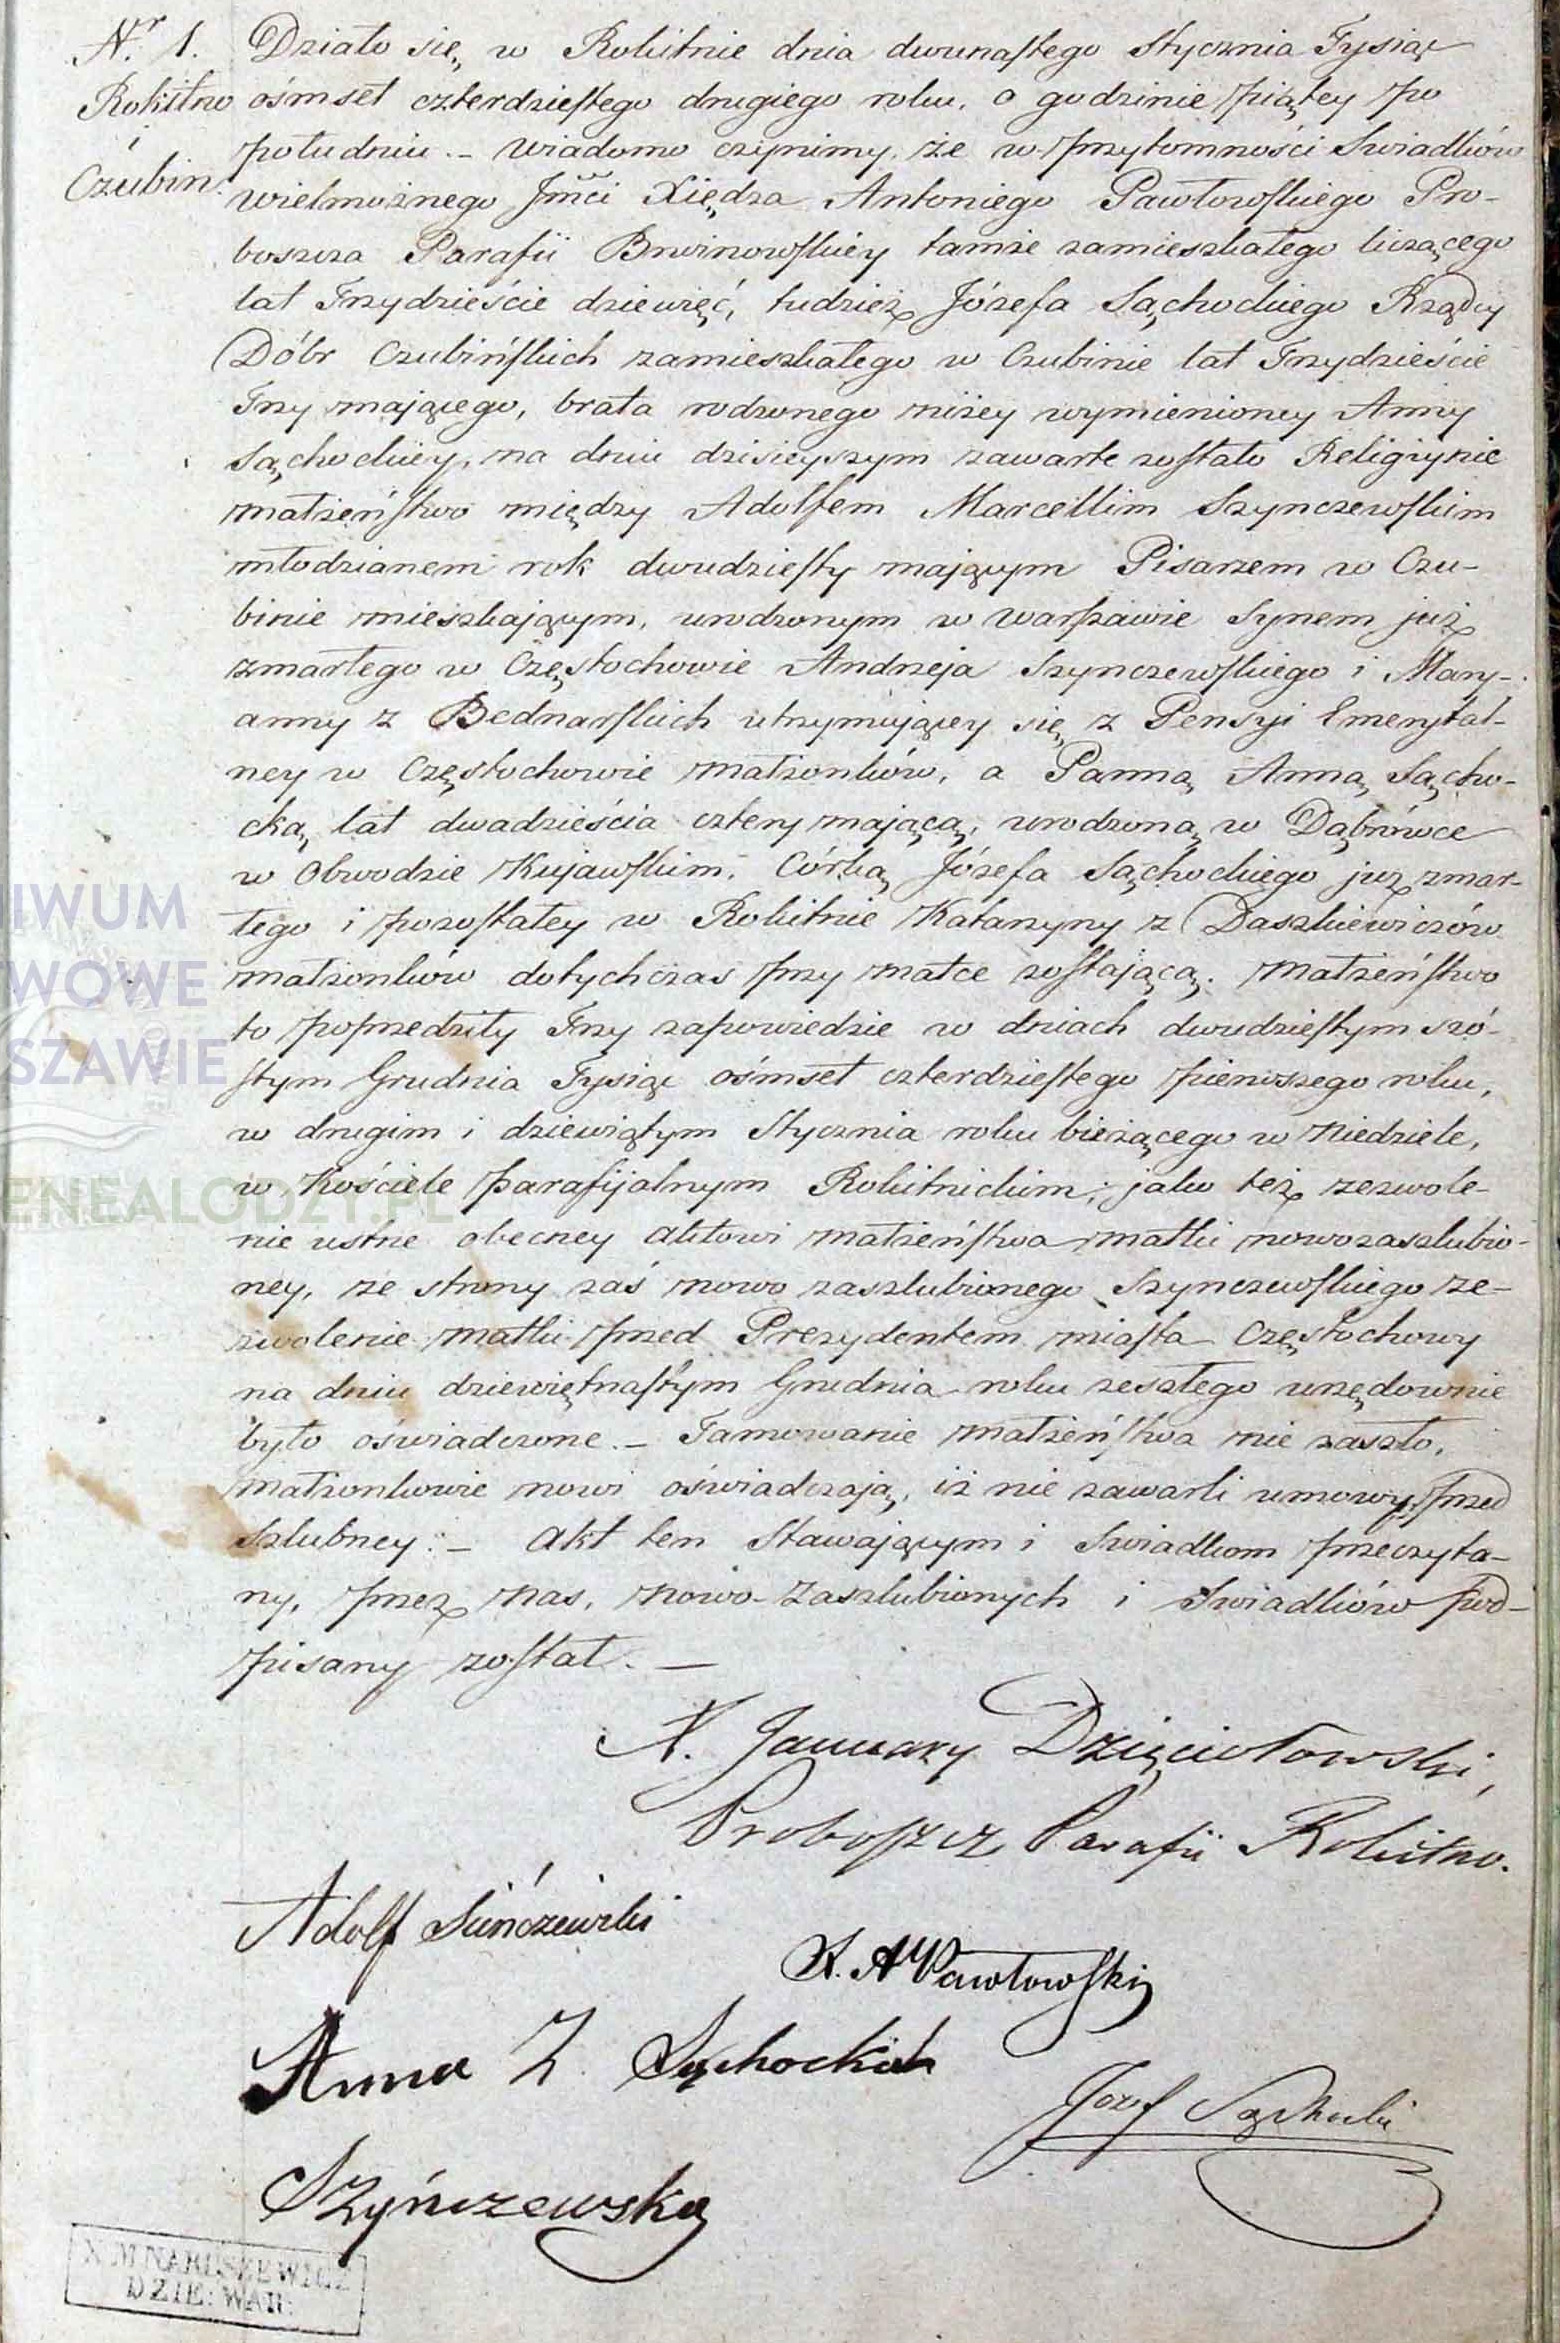 Nr 1. Działo się w Rokitnie dnia dwunastego Stycznia Tysiąc
Rokitno ośmset czterdziestego drugiego roku, o godzinie piątey po
i południu. – Wiadomo czynimy, że w przytomności Swiadków
Czubin. Wielmożnego Jmći Xiędza Antoniego Pawłowskiego Pro-
boszcza Parafii Brwinowskiéy tamże zamieszkałego liczącego
lat Trzydzieście dziewięć, tudzież Józefa Sąchockiego Rządcy
Dóbr Czubińskich zamieszkałego w Czubinie lat Trzydzieście
Trzy mającego, brata rodzonego niżey wymienioney Anny
Sąchockiéy, na dniu dzisieyszym zawarte zostało Religiynie
małżeństwo między Adolfem Marcellim Szynczewskim
młodzianem rok dwudziesty mającym Pisarzem w Czu-
binie mieszkającym, urodzonym w Warszawie Synem już
zmarłego w Częstochowie Andrzeja Szynczewskiego i Mary-
anny z Bednarskich utrzymującey się z Pensyi Emerytal-
ney w Częstochowie małżonków, a Panną Anną Sącho-
cką, lat dwadzieścia cztery mającą, urodzoną w Dąbrówce
w Obwodzie Kujawskim, Córką Józefa Sąchockiego już zmar-
łego i pozostałey w Rokitnie Katarzyny z Daszkiewiczów
małżonków dotychczas przy matce zostającą. Małżeństwo
to poprzedziły Trzy zapowiedzie w dniach dwudziestym szó-
stym Grudnia Tysiąc ośmset czterdziestego pierwszego roku,
w drugim i dziewiątym Stycznia roku bieżącego w Niedziele,
w Kościele parafijalnym Rokitnickim; jako też zezwole-
nie ustne obecney aktowi małżeństwa matki nowozaszlubio-
ney, ze strony zaś nowo zaszlubionego Szynczewskiego ze-
zwolenie matki przed Prezydentem miasta Częstochowy
na dniu dziewiętnastym Grudnia roku zeszłego urzędownie
było oświadczone. – Tamowanie małżeństwa nie zaszło,
małżonkowie nowi oświadczają, iż nie zawarli umowy przed
szlubney. – Akt ten Stawającym i Swiadkom przeczyta-
ny, przez nas, nowo-zaszlubionych i Swiadków pod-
pisany został. –
X. January Dzięciołowski,
Proboszcz Parafii Rokitno.
Adolf Sińczewski
X. A Pawłowski
Anna Z Sąchockich
Józef Sąchocki
Szyńczewska
X. M NARUSZEWICZ
DZIE: WAR:
IWUM
WOWE
SZAWIE
ENEALODZY.PL